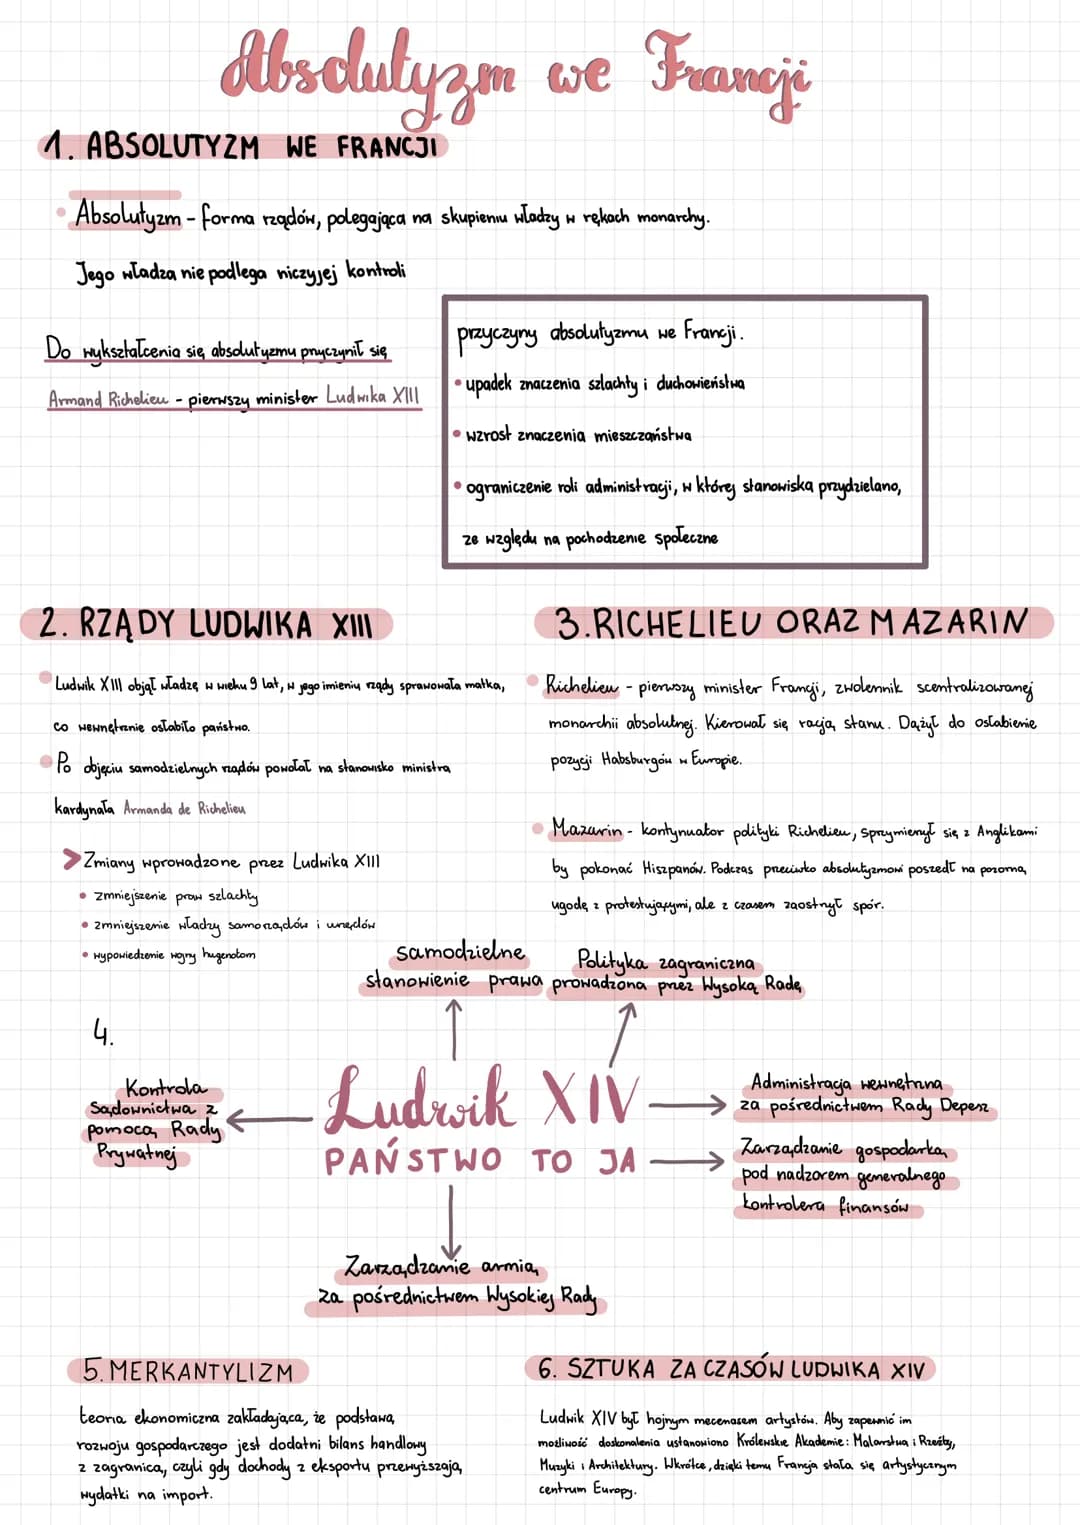 Absolutyzm we Francji
1. ABSOLUTYZM WE FRANCJI
Absolutyzm - forma rządów, polegająca na skupieniu władzy w rękach monarchy.
Jego władza nie podlega niczyjej kontroli
Do wykształcenia się absolutyzmu przyczynił się
Armand Richelieu - pierwszy minister Ludwika XIII
przyczyny absolutyzmu we Francji.
• upadek znaczenia szlachty i duchowieństwa
• wzrost znaczenia mieszczaństwa
• ograniczenie roli administracji, w której stanowiska przydzielano,
ze względu na pochodzenie społeczne
2. RZĄDY LUDWIKA XIII
• Ludwik XIII objął władzę w wieku 9 lat, w jego imieniu rządy sprawowała matka,
co wewnętrznie osłabiło państwo.
• Po objęciu samodzielnych rządów powołał na stanowisko ministra
kardynała Armanda de Richelieu
> Zmiany wprowadzone przez Ludwika XIII
• zmniejszenie praw szlachty
• zmniejszenie władzy samorządów i urzędów
• wypowiedzenie wojny hugenotom
3. RICHELIEU ORAZ MAZARIN
• Richelieu - pierwszy minister Francji, zwolennik scentralizowanej
monarchii absolutnej. Kierował się racją stanu. Dążył do osłabienie
pozycji Habsburgów w Europie.
• Mazarin - kontynuator polityki Richelieu, sprzymierzył się z Anglikami
by pokonać Hiszpanów. Podczas przeciwko absolutyzmowi poszedł na pozorną
ugodę z protestującymi, ale z czasem zaostrzył spór.
4.
samodzielne
stanowienie prawa
Polityka zagraniczna
prowadzona przez Wysoką Radę
Kontrola
Sądownictwa z
pomocą Rady
Prywatnej
Ludwik XIV
PAŃSTWO TO JA
Administracja wewnętrzna
za pośrednictwem Rady Depesz
Zarządzanie gospodarką
pod nadzorem generalnego
kontrolera finansów
Zarządzanie armią
za pośrednictwem Wysokiej Rady
5. MERKANTYLIZM
teoria ekonomiczna zakładająca, że podstawą
rozwoju gospodarczego jest dodatni bilans handlowy
z zagranicą, czyli gdy dochody z eksportu przewyższają
wydatki na import.
6. SZTUKA ZA CZASÓW LUDWIKA XIV
Ludwik XIV był hojnym mecenasem artystów. Aby zapewnić im
możliwość doskonalenia ustanowiono Królewskie Akademie: Malarstwa i Rzeźby,
Muzyki i Architektury. Wkrótce, dzięki temu Francja stała się artystycznym
centrum Europy.